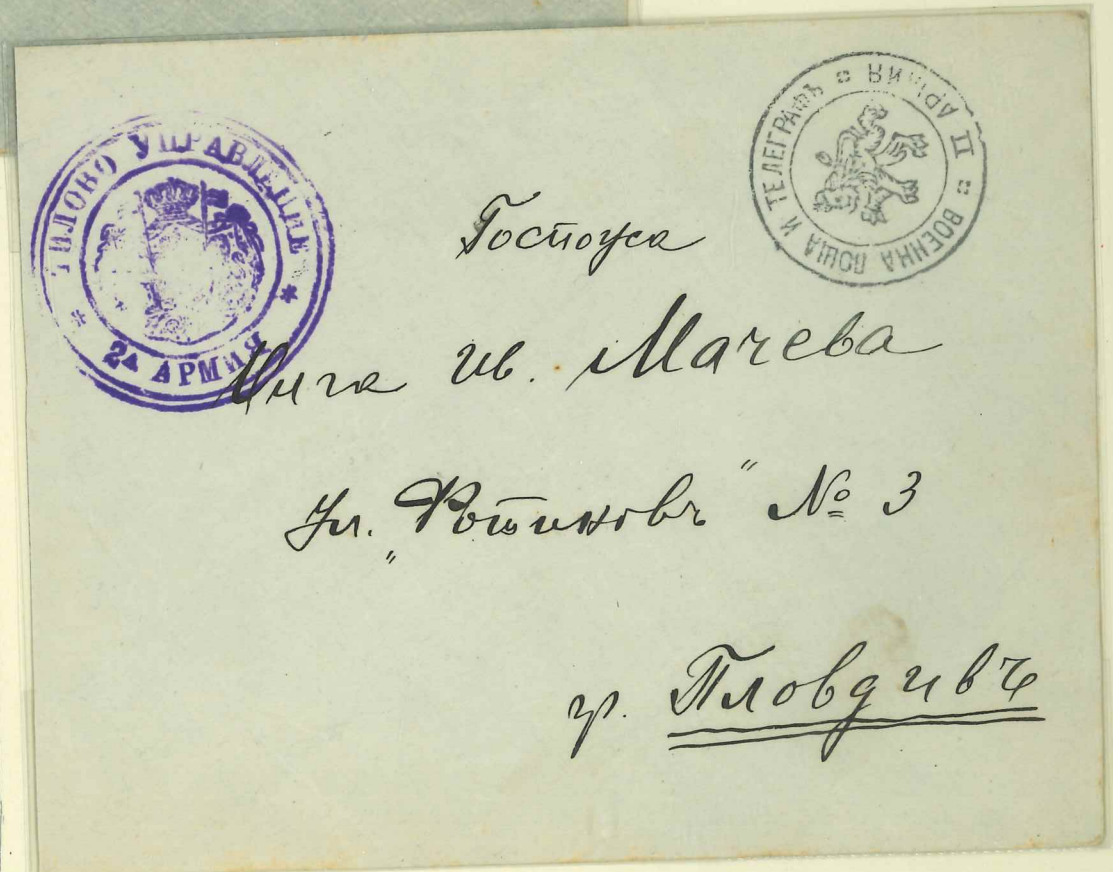 ТИЛОВО УПРАВЛЕНИЕ
2А АРМИЯ
ВОЕННА ПОЩА И ТЕЛЕГРАФЪ
II АРМИЯ
Госпожа
Ив. Мачева
Ул. „Фотиновъ" № 3
гр. Пловдивъ